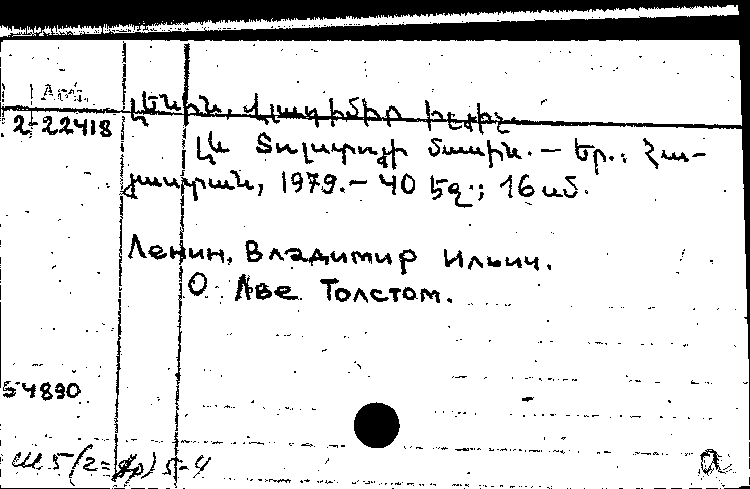 Լենին, Վլադիմիր Իլյիչ.
2-22418
Լև Տոլստոյի մասին. – Եր.: Հա-
յաստան, 1979. – 40 էջ.; 16 սմ.
Ленин, Владимир Ильич.
О Льве Толстом.
54890
5-4
а